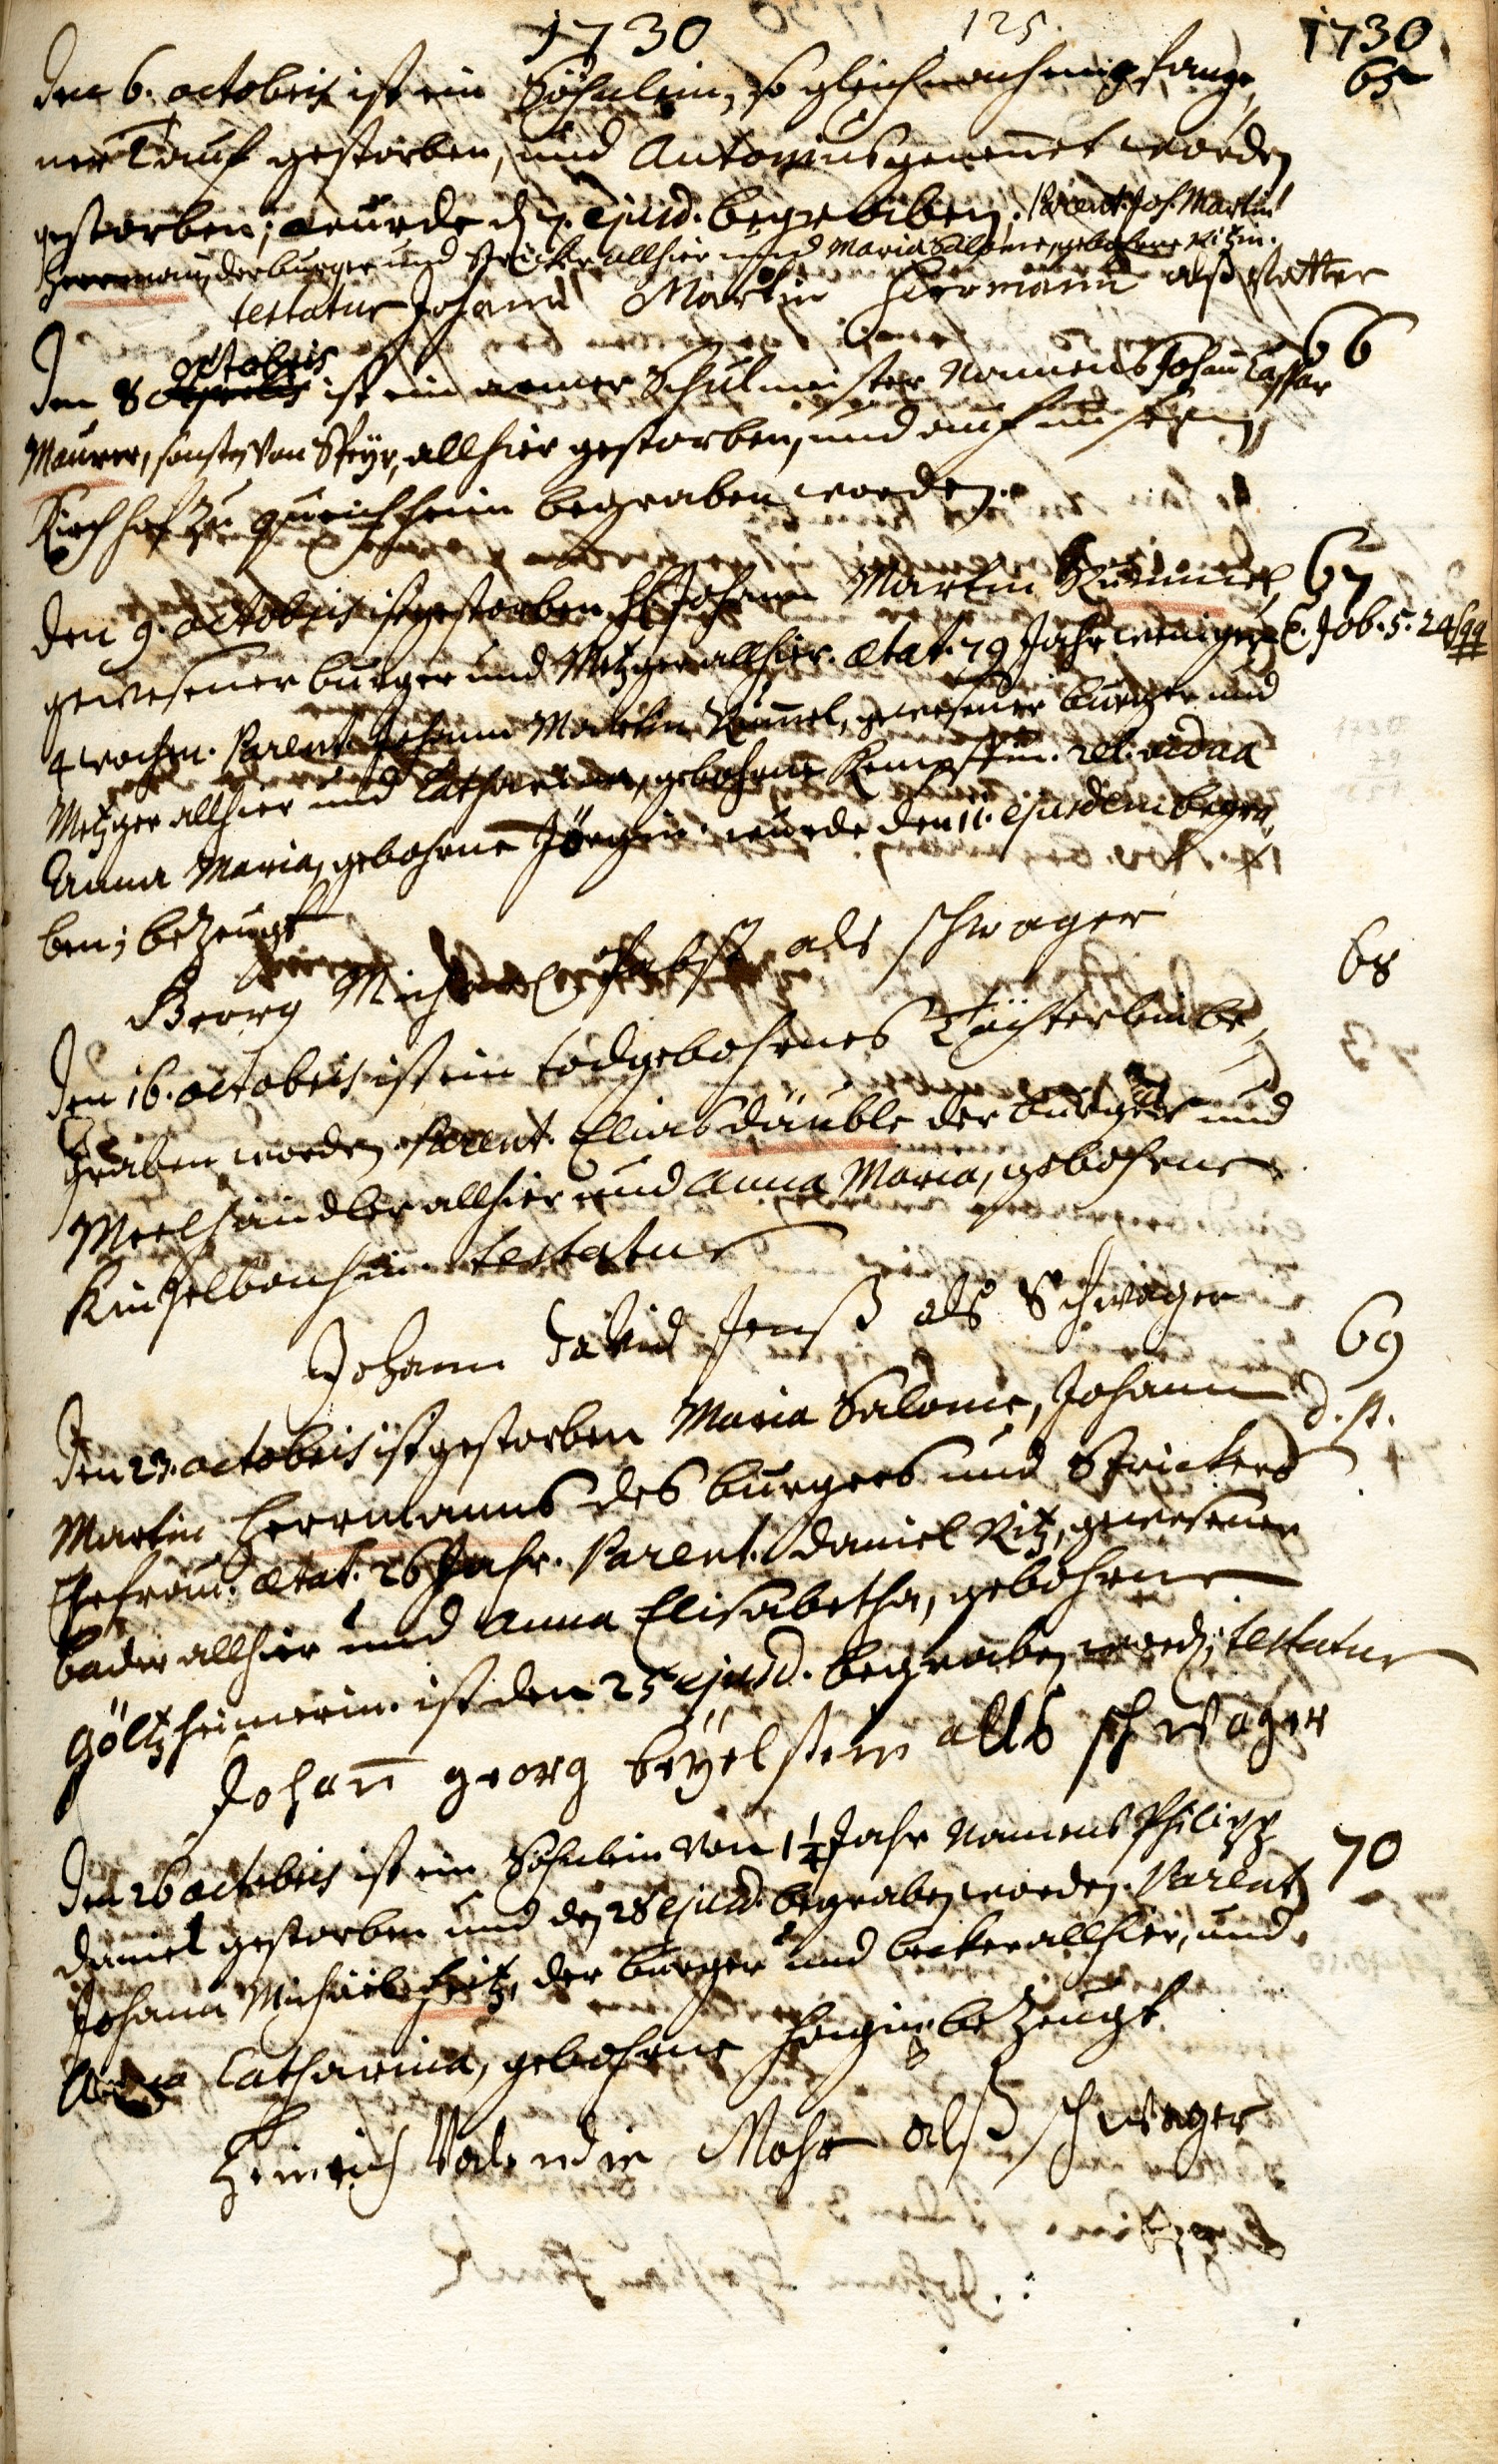 1730 125. 1730
Den 6. octobris ist ein Söhnlein, so gleich nach empfange, 65
ner Tauf gestorben, und Antonius genennet worden
gestorben; wurde d. 7. ejusd. begraben. Parent. Joh. Martin
Herrmann, der burger und Stricker allhier und Maria Salome, gebohrne Ritzin.
testatur Johann Martin Hermann alß Vatter
Den 8 octobris ist ein armer Schulmeister Namens Johan Caspar 66
Maurer, sonsten von Speyr, allhier gestorben, und auf
Kirchhof zu queichheim begraben worden.
Den 9. octobris ist gestorben H. Johann Martin Kümmel, 67
gewesener burger und Metzger allhier. ætat. 79 Jahr weniger C. Job. 5. 24 sqq
4 wochen. Parent. Johann Martin Kümmel, gewesener burger und
Metzger allhier und Catharina, gebohrne Kempffin. rel. vidua
Anna Maria, gebohrne Jörgin. wurde den 11. ejusdem begra,
ben; bezeugt
Georg Michael Pabst als schwager
68
Den 16. octobris ist ein todgebohrnes Töchterlein be,
graben worden. Parent. Elias däuble der burger und
Meelhändler allhier und Anna Maria, gebohrne
testatur
Johann David Jenß als Schwager
69
Den 23. octobris ist gestorben Maria Salome, Johann d. st.
Martin Herrmanns des burgers und Strickers
Ehefrau. ætat. 26 Jahr. Parent. Daniel Ritz, gewesener
bader allhier und Anna Elisabetha, gebohrne
Göltzheimerin. ist den 25 ejusd. begraben worden; testatur
Johann georg beyelstein alls schwager
Den 26 octobris ist ein Söhnlein von 1 1/4 Jahr Namens Philipp 70
Daniel gestorben und den 28 ejusd. begraben worden. Parent
Johann Michael Hitz, der burger und becker allhier, und
Anna Catharina, gebohrne bezeugt
Heinrich Valendin Mohr alß schwager